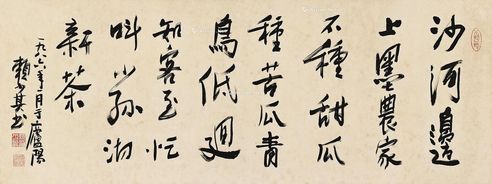 沙河邊
上農家
不種甜瓜
種苦瓜青
鳥低迴
知客至忙
叫小孫沏
新茶
一九八六年月于廬陽
賴少其書